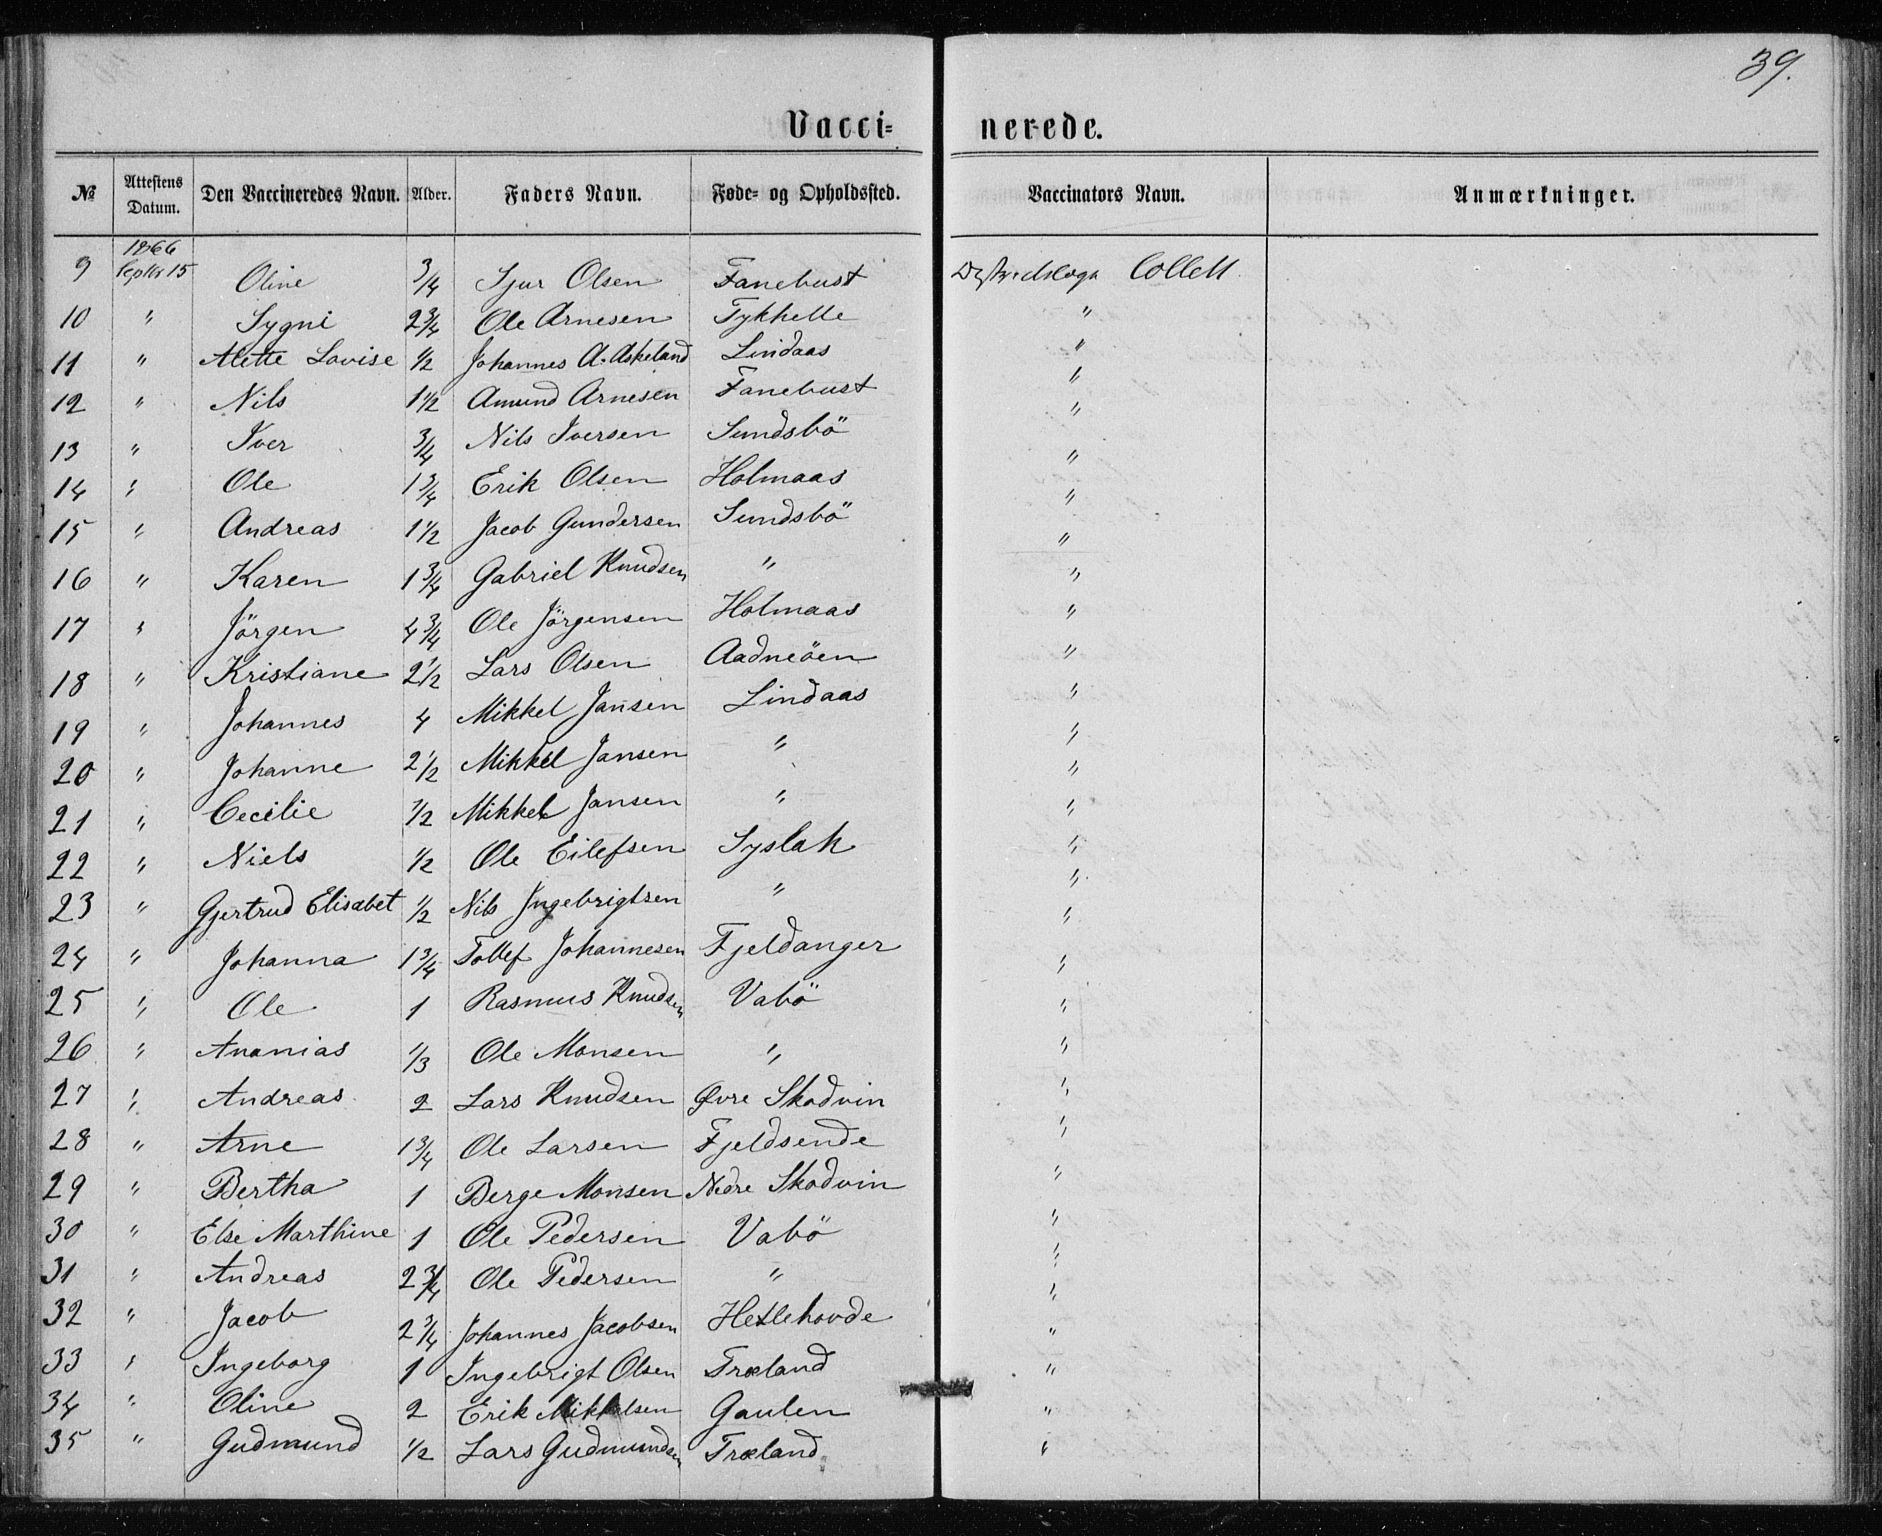 39.
Vacci- nerede.
No Attestens Datum. Den Vaccineredes Navn. Alder. Faders Navn. Føde- og Opholdssted. Vaccinators Navn. Anmærkninger.
1866
9 Septbr 15 Oline 3/4 Sjur Olsen Fanebust Distriktslæge Collett
10 " Sygni 2 3/4 Ole Arnesen Tykhelle "
11 " Alette Lovise 1/2 Johannes A. Askeland Lindaas "
12 " Nils 1 1/2 Amund Arnesen Fanebust "
13 " Iver 3/4 Nils Iversen Sundsbö "
14 " Ole 1 3/4 Erik Olsen Holmaas "
15 " Andreas 1 1/2 Jacob Gundersen Sundsbö "
16 " Karen 1 3/4 Gabriel Knudsen " "
17 " Jörgen 4 3/4 Ole Jörgensen Holmaas "
18 " Kristiane 2 1/2 Lars Olsen Aadneöen "
19 " Johannes 4 Mikkel Jansen Lindaas "
20 " Johanne 2 1/2 Mikkel Jansen " "
21 " Cecilie 1/2 Mikkel Jansen " "
22 " Niels 1/2 Ole Eilefsen Syslak "
23 " Gjertrud Elisabet 1/2 Nils Ingebrigtsen " "
24 " Johanna 1 3/4 Tollef Johannesen Fjeldanger "
25 " Ole 1 Rasmus Knudsen Vabö "
26 " Ananias 1/3 Ole Monsen " "
27 " Andreas 2 Lars Knudsen Øvre Skodvin "
28 " Arne 1 3/4 Ole Larsen Fjeldsende "
29 " Bertha 1 Berge Monsen Nedre Skodvin "
30 " Else Marthine 1 Ole Pedersen Vabö "
31 " Andreas 2 3/4 Ole Pedersen " "
32 " Jacob 2 3/4 Johannes Jacobsen Hetlehovde "
33 " Ingeborg 1 Ingebrigt Olsen Træland "
34 " Oline 2 Erik Mikkelsen Gaulen "
35 " Gudmund 1/2 Lars Gudmundsen Træland "